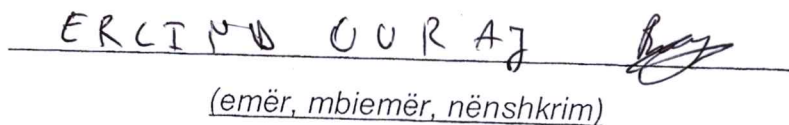 ERCIND OURAJ
(emër, mbiemër, nënshkrim)